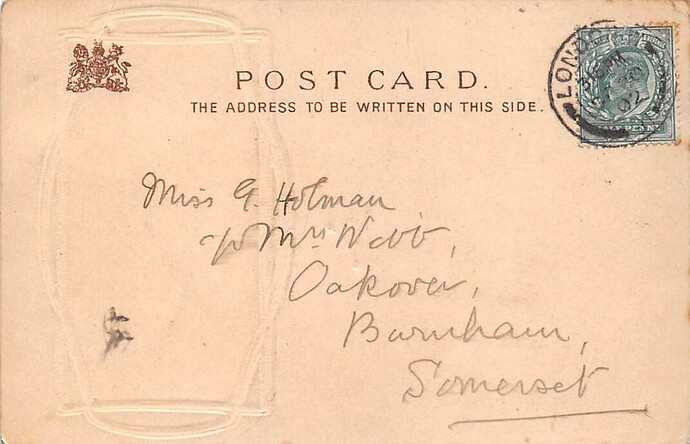 POST CARD.
THE ADDRESS TO BE WRITTEN ON THIS SIDE.
LONDON
02
HALF PENNY
Miss G. Holman
c/o Mrs Webb,
Oakover,
Burnham,
Somerset